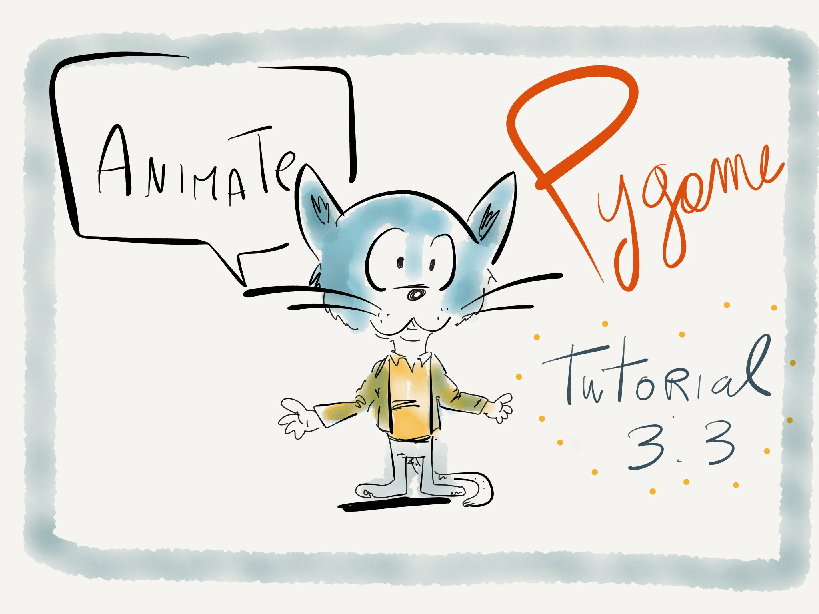 ANIMATe
Pygame
TuTORIal
3.3